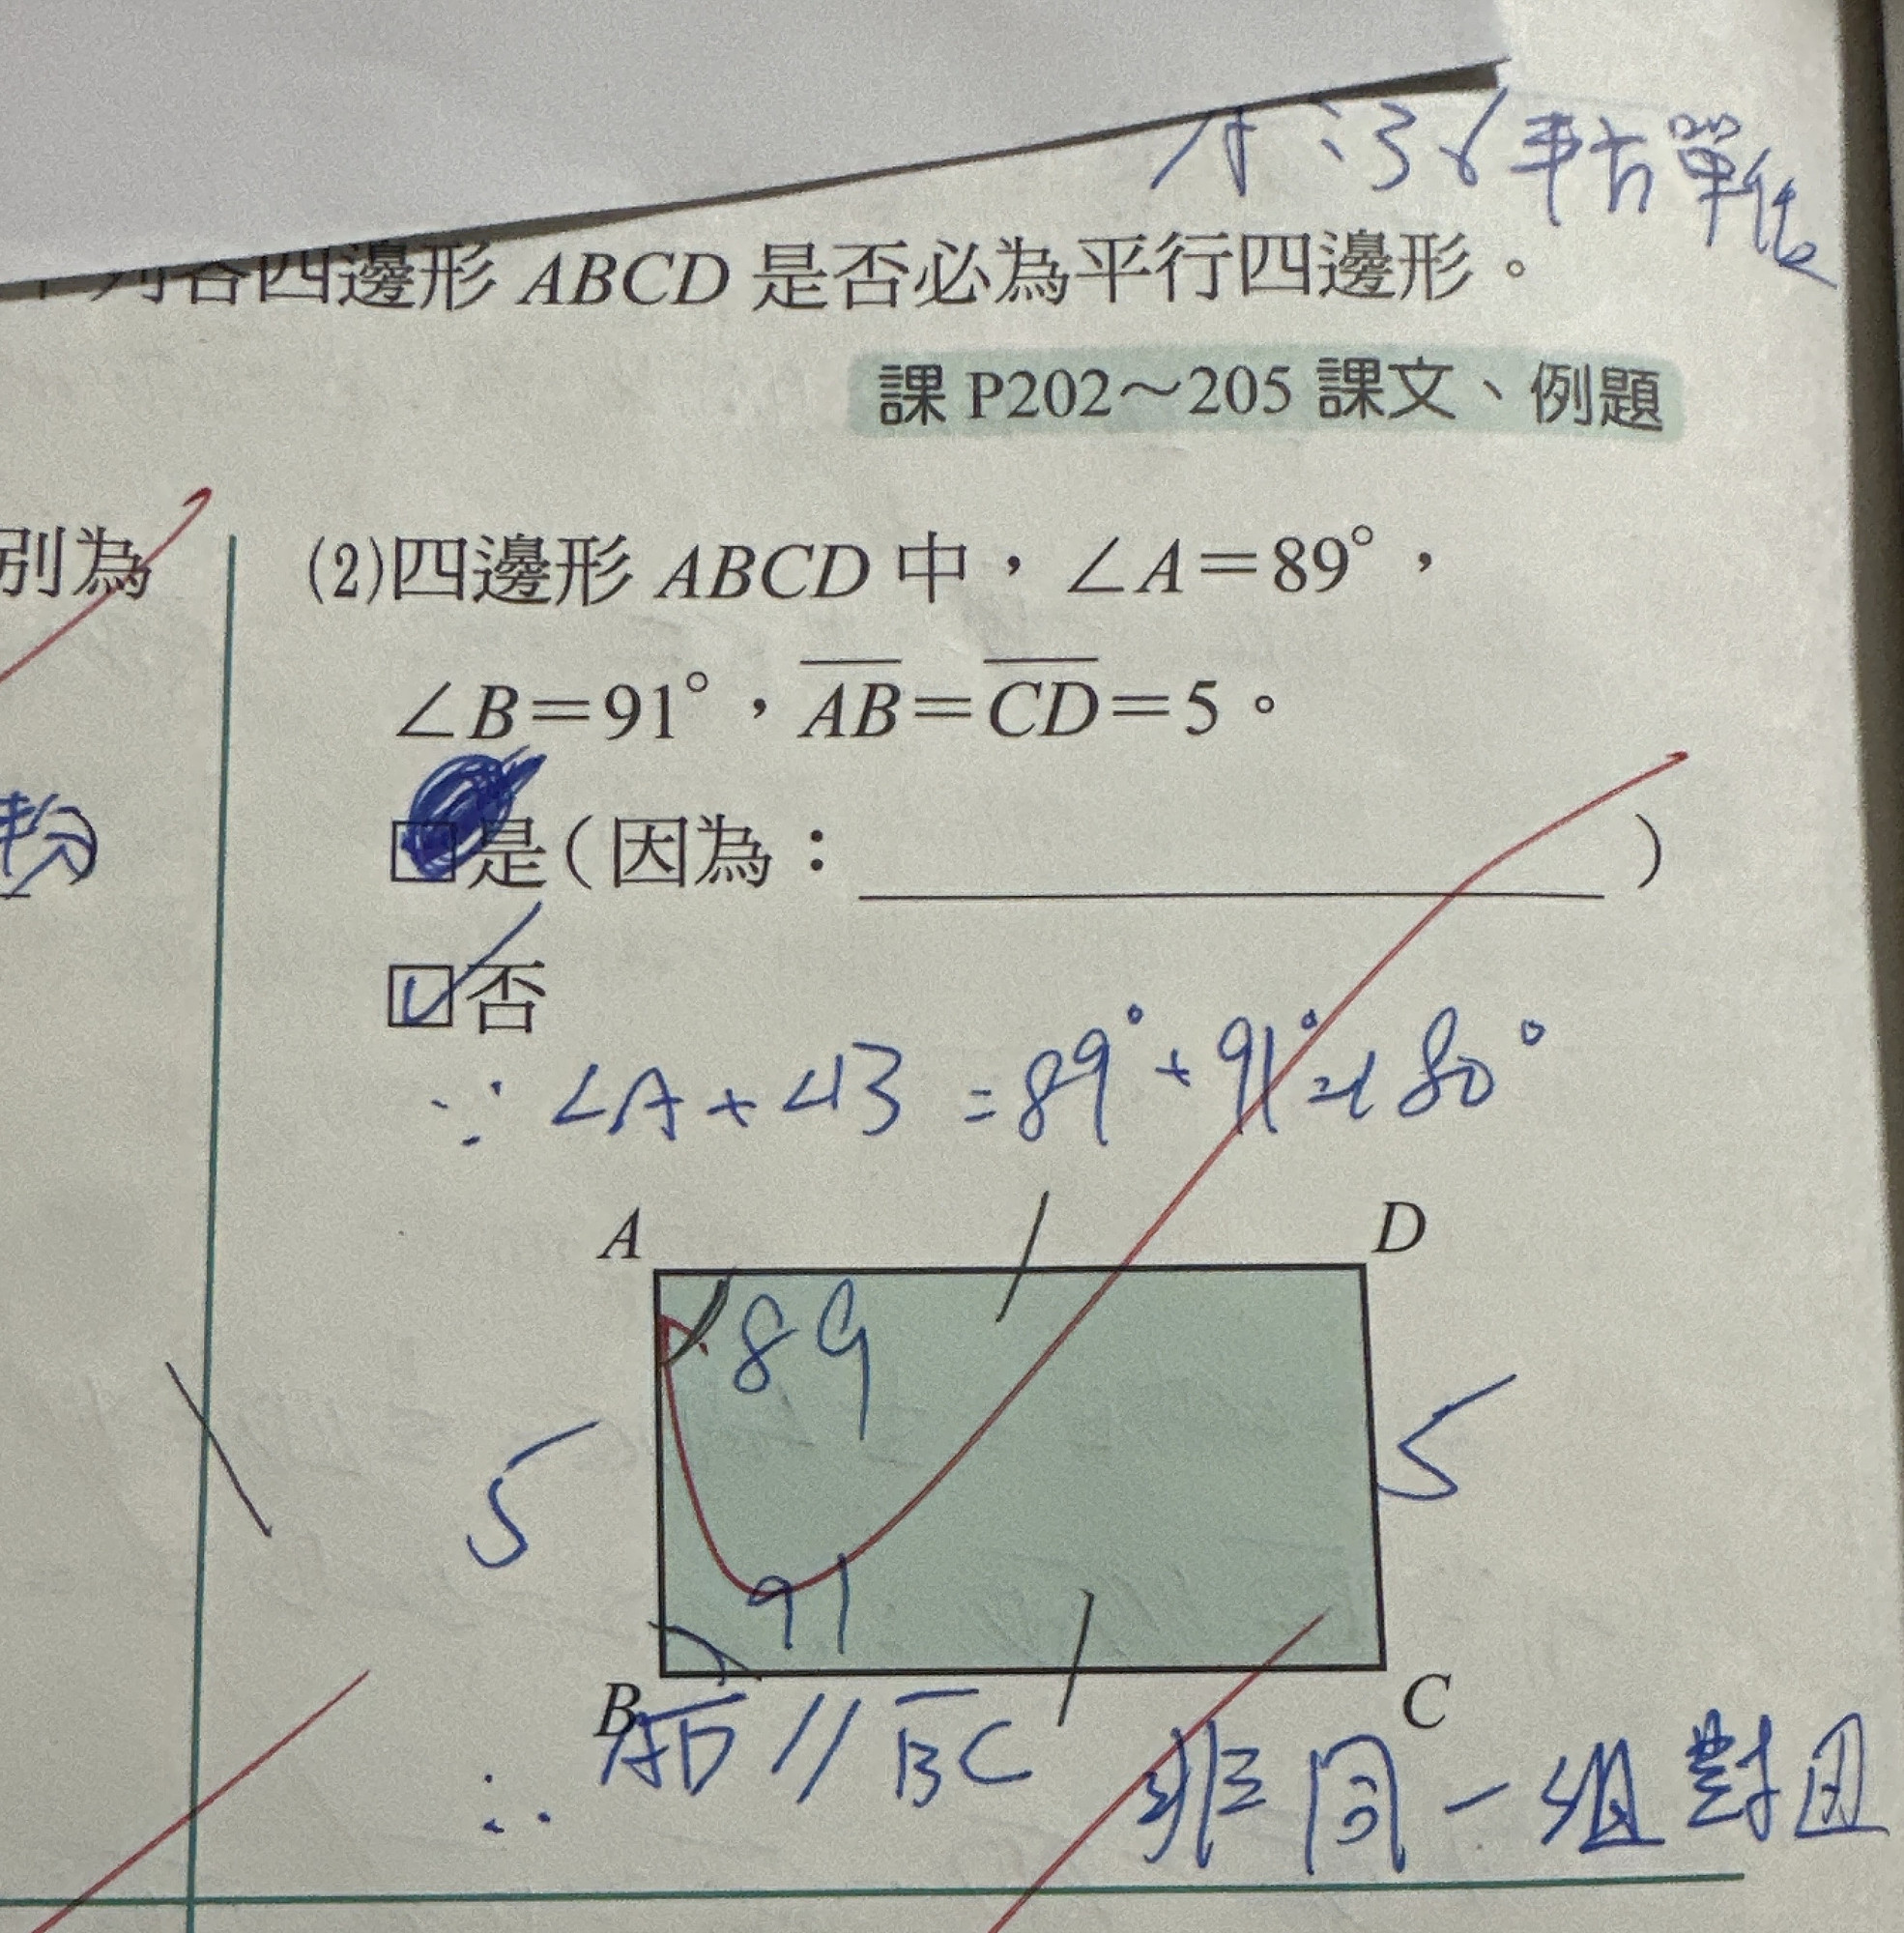 列各四邊形 ABCD 是否必為平行四邊形。
課 P202～205 課文、例題
別為
(2)四邊形 ABCD 中，∠A＝89°，
∠B＝91°，AB＝CD＝5。
□是（因為：＿＿＿＿＿＿＿＿）
☑否
∵ ∠A + ∠B = 89° + 91° = 180°
A D
89
5 5
91
B C
∴ AD // BC 非同一組對